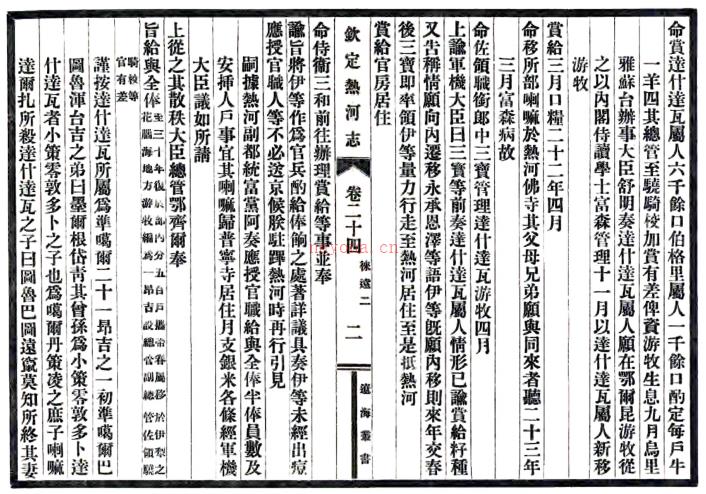 命賞達什達瓦屬人六千餘口伯格里屬人一千餘口酌定每戶牛
一羊四其總管至驍騎校加賞有差俾資游牧生息九月烏里
雅蘇台辦事大臣舒明奏達什達瓦屬人願在鄂爾昆游牧從
之以內閣侍讀學士富森管理十一月以達什達瓦屬人新移
游牧
賞給三月口糧二十二年四月
命移所部喇嘛於熱河佛寺其父母兄弟願與同來者聽二十三年
三月富森病故
命佐領職銜郎中三寶管理達什達瓦游牧四月
上諭軍機大臣曰三寶等前奏達什達瓦屬人情形已諭賞給籽種
又告稱情願向內遷移永承恩澤等語伊等既願內移則來年交春
後三寶即率領伊等量力行走至熱河居住至是抵熱河
賞給官房居住
欽定熱河志 卷二十四 徠遠二 二 遼海叢書
命侍衛三和前往辦理賞給等事並奉
諭旨將伊等作爲官兵酌給俸餉之處著詳議具奏伊等未經出痘
應授官職人等不必送京候朕駐蹕熱河時再行引見
嗣據熱河副都統富當阿奏應授官職給與全俸半俸員數及
安插人戶事宜其喇嘛歸普寧寺居住月支銀米各條經軍機
大臣議如所請
上從之其散秩大臣總管鄂齊爾奉
旨給與全俸至三十年復於部內分五百戶攜帶眷屬移於伊犂之
花腦海地方游牧編爲一昂吉設總管副總管佐領驍
騎校等
官有差
謹按達什達瓦所屬爲準噶爾二十一昂吉之一初準噶爾巴
圖魯渾台吉之弟曰墨爾根岱靑其曾孫爲小策零敦多卜達
什達瓦者小策零敦多卜之子也爲噶爾丹策凌之庶子喇嘛
達爾扎所殺達什達瓦之子曰圖魯巴圖遠竄莫知所終其妻